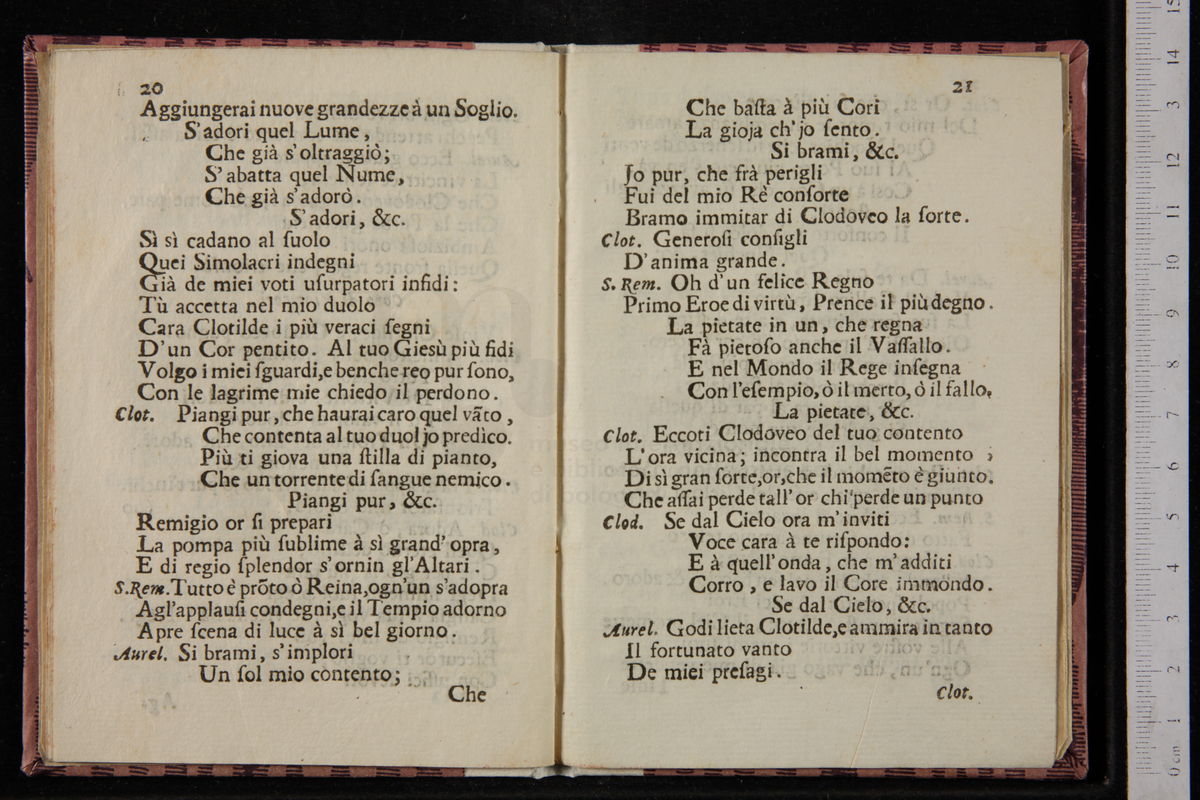 20
Aggiungerai nuove grandezze à un Soglio.
S'adori quel Lume,
Che già s'oltraggiò;
S'abatta quel Nume,
Che già s'adorò.
S'adori, &c.
Sì sì cadano al ſuolo
Quei Simolacri indegni
Già de miei voti uſurpatori infidi:
Tù accetta nel mio duolo
Cara Clotilde i più veraci ſegni
D'un Cor pentito. Al tuo Giesù più fidi
Volgo i miei ſguardi,e benche reo pur ſono,
Con le lagrime mie chiedo il perdono.
Clot. Piangi pur, che haurai caro quel vāto,
Che contenta al tuo duol jo predico.
Più ti giova una ſtilla di pianto,
Che un torrente di ſangue nemico.
Piangi pur, &c.
Remigio or ſi prepari
La pompa più ſublime à sì grand'opra,
E di regio ſplendor s'ornin gl'Altari.
S.Rem. Tutto è prōto ò Reina,ogn'un s'adopra
Agl'applauſi condegni,e il Tempio adorno
Apre ſcena di luce à sì bel giorno.
Aurel. Si brami, s'implori
Un ſol mio contento;
Che
21
Che baſta à più Cori
La gioja ch'jo ſento.
Si brami, &c.
Jo pur, che frà perigli
Fui del mio Rè conſorte
Bramo immitar di Clodoveo la ſorte.
Clot. Generoſi conſigli
D'anima grande.
S. Rem. Oh d'un felice Regno
Primo Eroe di virtù, Prence il più degno.
La pietate in un, che regna
Fà pietoſo anche il Vaſſallo.
E nel Mondo il Rege inſegna
Con l'eſempio, ò il merto, ò il fallo,
La pietate, &c.
Clot. Eccoti Clodoveo del tuo contento
L'ora vicina; incontra il bel momento;
Di sì gran ſorte,or,che il momēto è giunto.
Che aſſai perde tall'or chi perde un punto
Clod. Se dal Cielo ora m'inviti
Voce cara à te riſpondo:
E à quell'onda, che m'additi
Corro, e lavo il Core immondo.
Se dal Cielo, &c.
Aurel. Godi lieta Clotilde,e ammira in tanto
Il fortunato vanto
De miei preſagi.
Clot.
0 cm 1 2 3 4 5 6 7 8 9 10 11 12 13 14 15